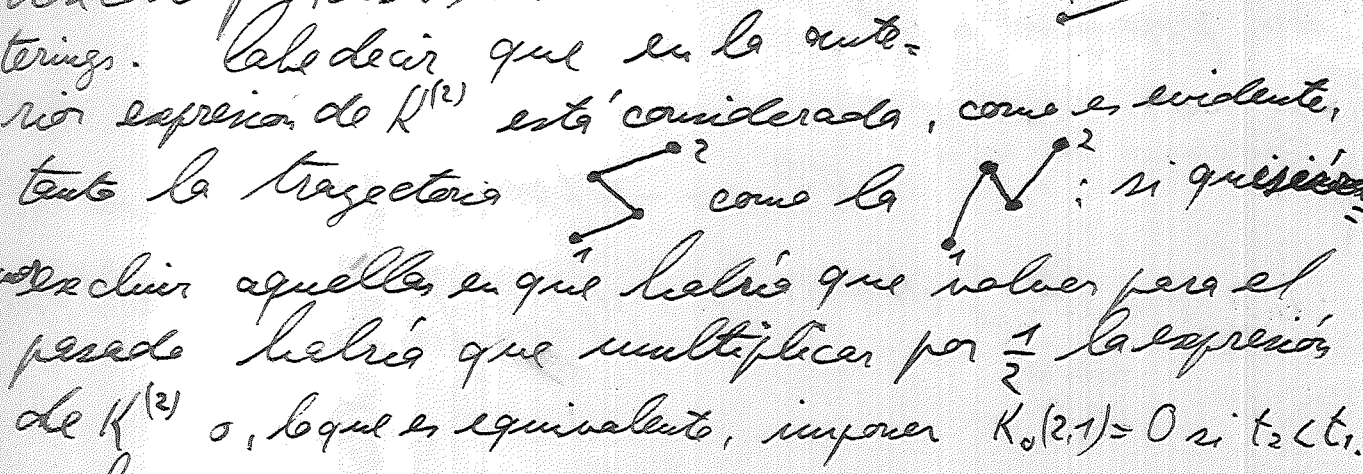 terings. Cabe decir que en la ante=
rior expresión de K⁽²⁾ está considerada, como es evidente,
tanto la trayectoria 1 2 como la 1 2 ; si quisiéra=
mos excluir aquellas en que habría que volver para el
pasado habría que multiplicar por 1/2 la expresión
de K⁽²⁾ o, lo que es equivalente, imponer K₀(2,1)=0 si t₂<t₁.